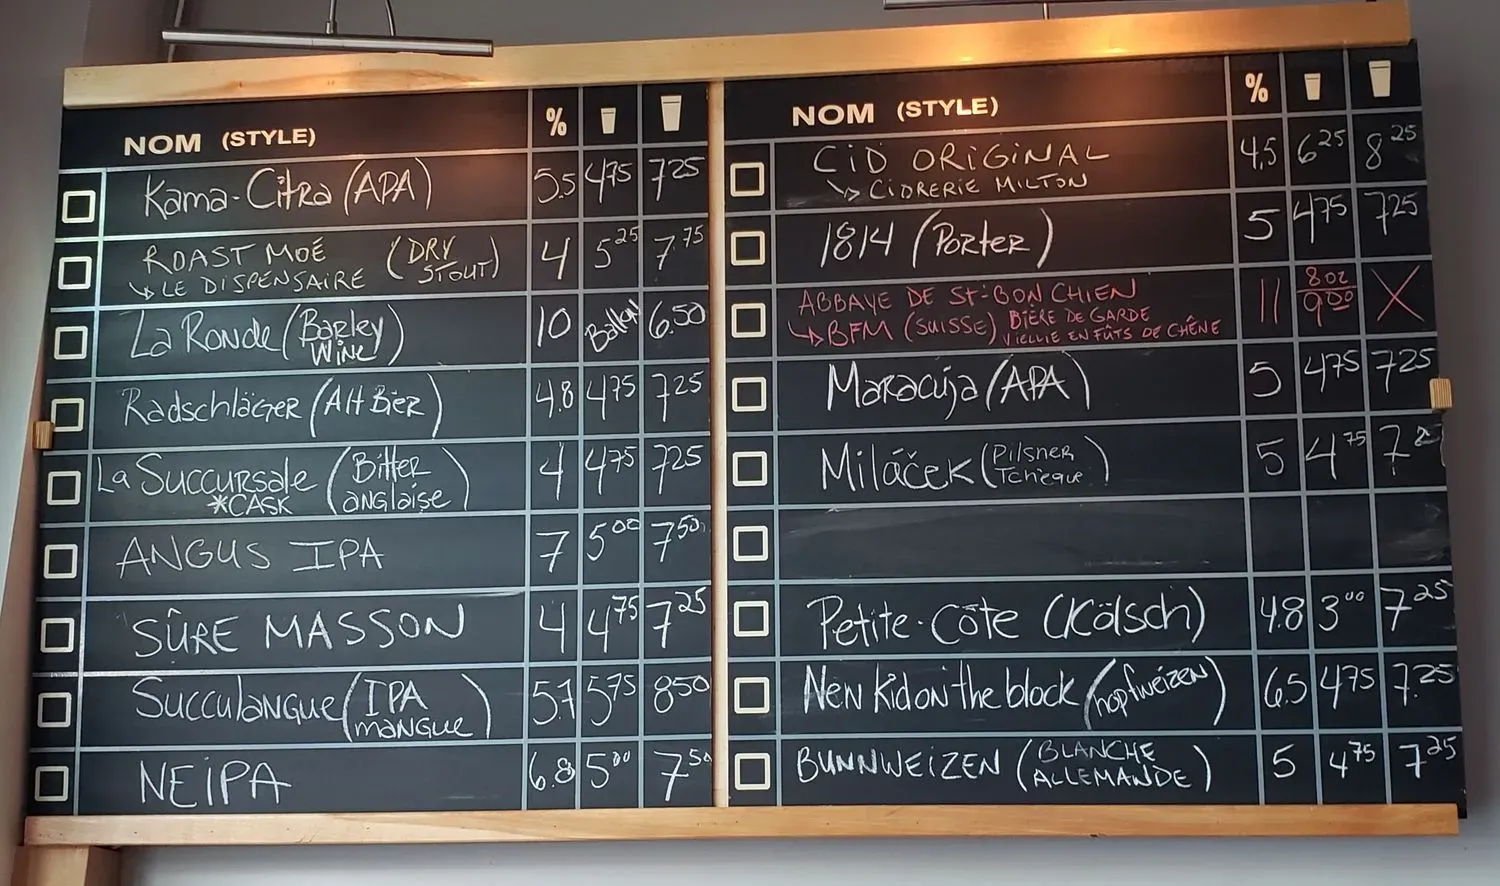 NOM (STYLE) %
Kama-Citra (APA) 5.5 4.75 7.25
ROAST MOÉ (DRY STOUT) 4 5.25 7.75
↳ LE DISPENSAIRE
La Ronde (Barley Wine) 10 Ballon 6.50
Radschläger (Alt Bier) 4.8 475 725
La Succursale (Bitter anglaise) 4 475 725
*CASK
ANGUS IPA 7 5.00 7.50
SÛRE MASSON 4 4.75 7.25
Succulangue (IPA mangue) 5.7 575 850
NEIPA 6.8 5.00 7.50
NOM (STYLE) %
CID ORIGINAL 4,5 6.25 8.25
↳ CIDRERIE MILTON
1814 (Porter) 5 475 725
ABBAYE DE ST-BON CHIEN 11 8oz 9.00 X
↳ BFM (SUISSE) BIÈRE DE GARDE
VIELLIE EN FÛTS DE CHÊNE
Maracuja (APA) 5 475 725
Miláček (Pilsner Tchèque) 5 4.75
Petite-Côte (Kölsch) 4.8 3.00 7.25
New Kid on the block (hopfweizen) 6.5 475 7.25
BUNNWEIZEN (BLANCHE ALLEMANDE) 5 4.75 7.25